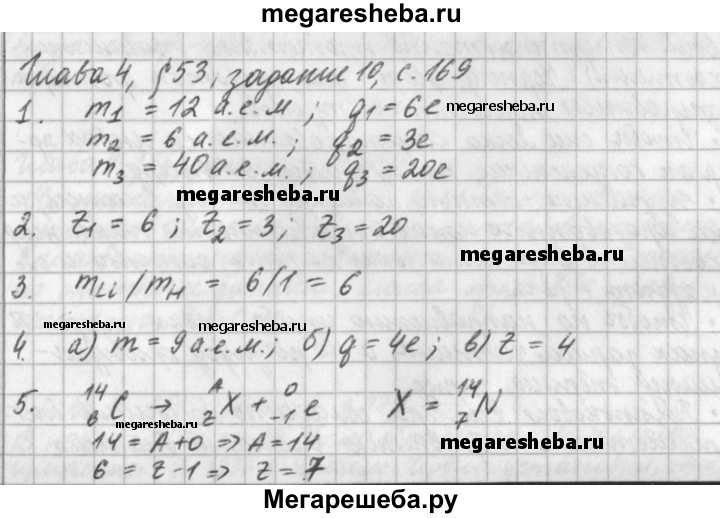 megaresheba.ru
Глава 4, § 53, задание 10, с. 169
1. m₁ = 12 а.е.м ; q₁ = 6e megaresheba.ru
m₂ = 6 а.е.м. ; q₂ = 3e
m₃ = 40 а.е.м. ; q₃ = 20e
megaresheba.ru
2. Z₁ = 6 ; Z₂ = 3 ; Z₃ = 20
megaresheba.ru
3. mLi/mH = 6/1 = 6
megaresheba.ru megaresheba.ru
4. а) m = 9 а.е.м.; б) q = 4e ; в) Z = 4
5. ¹⁴₆C → ᴬ_Z X + ⁰₋₁e X = ¹⁴₇N
megaresheba.ru
14 = A + 0 => A = 14 megaresheba.ru
6 = Z - 1 => Z = 7
Мегарешеба.ру